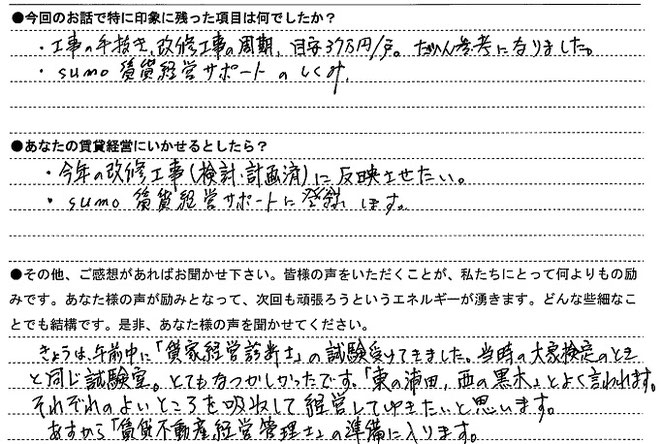 ●今回のお話で特に印象に残った項目は何でしたか？
・工事の手抜き、改修工事の周期、目安37万円/戸。たいへん参考になりました。
・sumo 賃貸経営サポートのしくみ。
●あなたの賃貸経営にいかせるとしたら？
・今年の改修工事（検討・計画済）に反映させたい。
・sumo 賃貸経営サポートに登録します。
●その他、ご感想があればお聞かせ下さい。皆様の声をいただくことが、私たちにとって何よりもの励
みです。あなた様の声が励みとなって、次回も頑張ろうというエネルギーが湧きます。どんな些細なこ
とでも結構です。是非、あなた様の声を聞かせてください。
きょうは、午前中に「貸家経営診断士」の試験受けてきました。当時の大家検定のとき
と同じ試験室。とてもなつかしかったです。「東の浦田、西の黒木」とよく言われます。
それぞれのよいところを吸収して経営してゆきたいと思います。
あすから「賃貸不動産経営管理士」の準備に入ります。